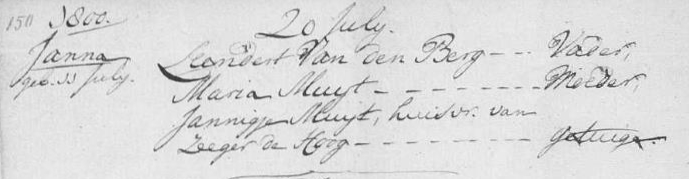 1511 1800. 20 July.
Janna Leendert Van den Berg - - - Vader,
geb. 11 July. Maria Muijt - - - - - - - - - Moeder,
Jannigje Muijt, huisvr. van
Zeeger de Hoog - - - - - - - - - getuige.